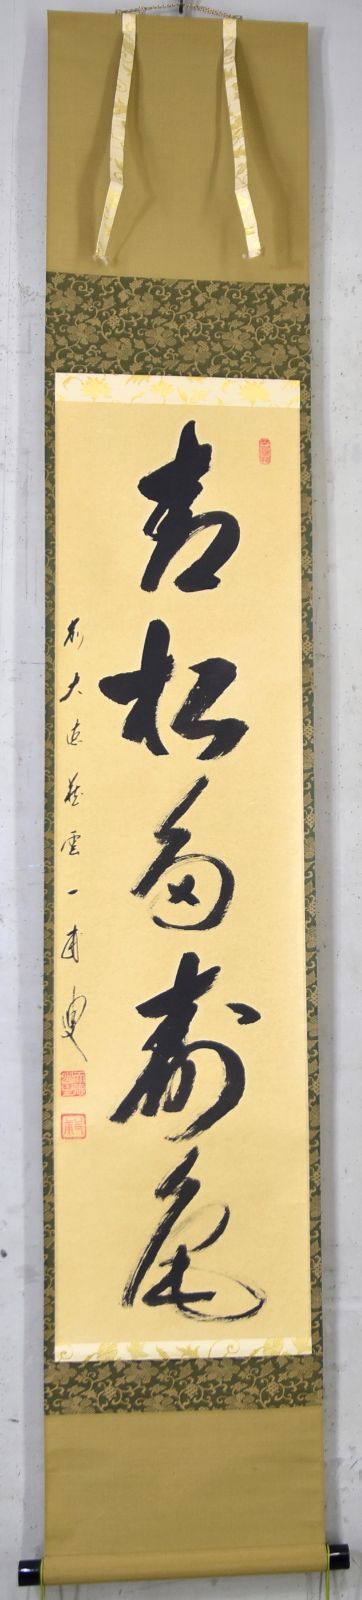 青松多寿色
前大徳藤雲一甫叟